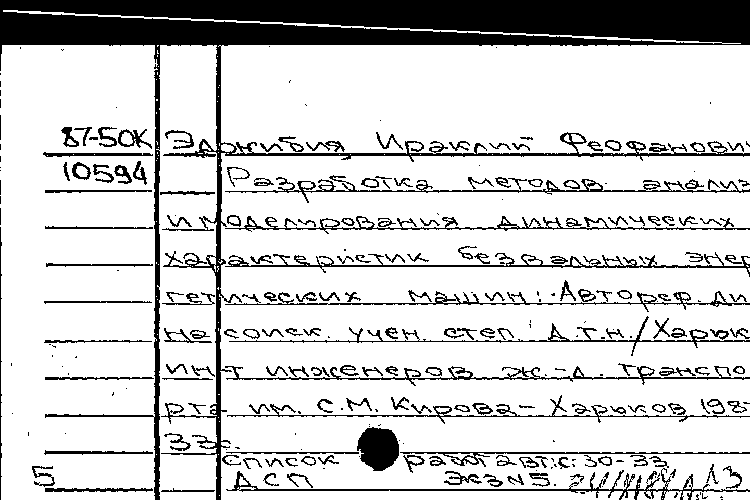 87-50К Эджибия, Ираклий Феофанович
10594 Разработка методов анализ
и моделирования динамических
характеристик безвальных энер
гетических машин: Автореф. ди
на соиск. учен. степ. д.т.н./Харьк
ин-т инженеров ж.-д. транспо
рта им. С.М. Кирова - Харьков, 198
33с.
Список работ авт.: с. 30-33
ДСП Экз N5.
5